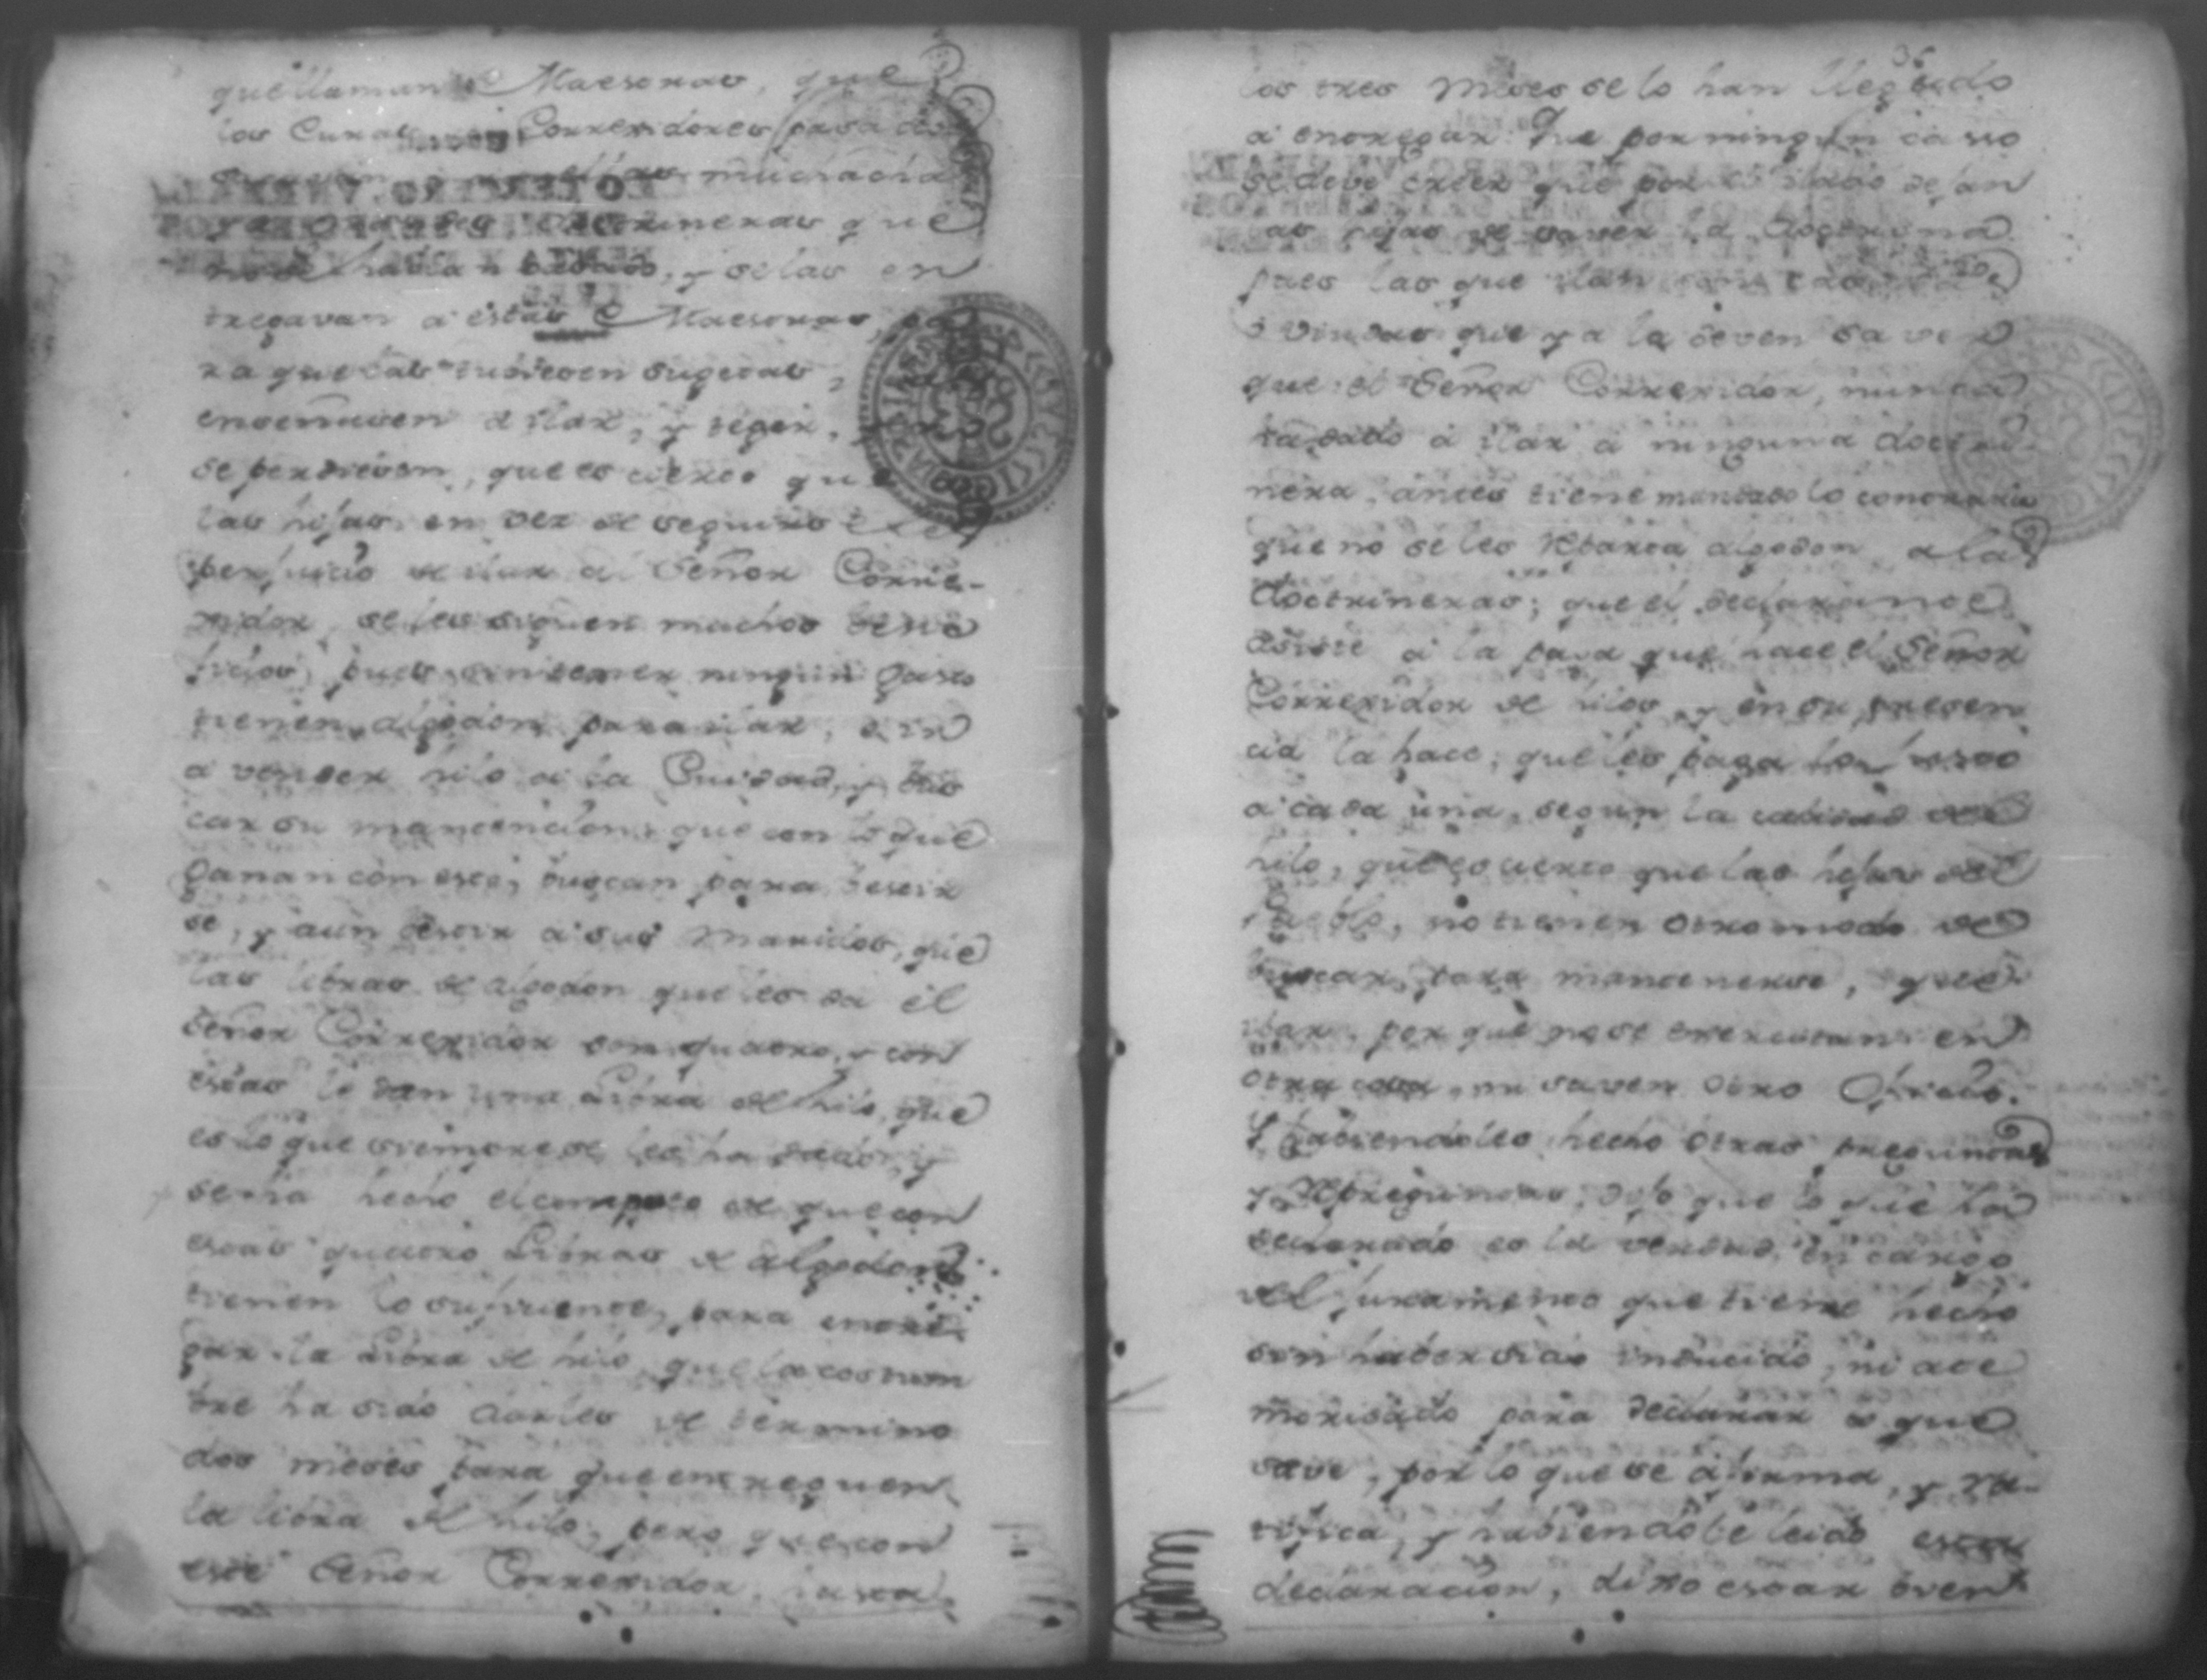 que llaman Maestras, que
los Curas Corregidores pasados
muchacha
Doctrineras que
no se habian casado, y se las en
tregavan a estas Maestras, pa
ra que las tubiesen sugetas,
enseñasen a ilar, y teger,
se perdiesen, que es cierto que
las hijas en vez de seguirsele
perjuicio de ilar al Señor Corre-
xidor, se les siguen muchos bene
ficios, pues sin tener ningun gasto
tienen algodon para ilar, e ir
a vender hilo a la Ciudad, y bus
car su mantencion, que con lo que
ganan con este, buscan para bestir
se, y aun bestir a sus Maridos, que
las libras de algodon que les da el
Señor Correxidor son quatro, y con
estas le dan una Libra de hilo, que
es lo que siempre se les ha dado, y
se ha hecho el computo de que con
estas quatro Libras de algodon
tienen lo suficiente, para entre
gar la Libra de hilo, que la costum
bre ha sido darles de termino
dos meses para que entreguen
la libra de hilo, pero que con
este Señor Correxidor, hasta
36
los tres Meses se lo han llegado
a entregar. Que por ningun casso
se debe creer que por el ilado dejan
las hijas de saver la Doctrina
pues las que ilan son casadas
o viudas que ya la deven saver
que el Señor Correxidor, nunca
ha dado a ilar a ninguna doctri-
nera, antes tiene mandado lo contrario
que no se les reparta algodon a las
doctrineras; que el declarante
asiste a la paga que hace el Señor
Correxidor de hilos, y en su presen
cia la hace; que les paga
a cada una, segun la calidad del
hilo, que es cierto que las hijas del
Pueblo, no tienen otro modo de
buscar, para mantenerse, que
ilar, por que no se exercitan en
otra cosa, ni saven otro Oficio.
Y haviendoles hecho otras preguntas
y Repreguntas, dijo que lo que ha
declarado es la verdad, en cargo
del juramento que tiene hecho
sin haber sido inducido, ni ate
morisado para declarar lo que
save, por lo que se afirma, y ra-
tifica, y habiendole leido esta
declaracion, dixo estar bien